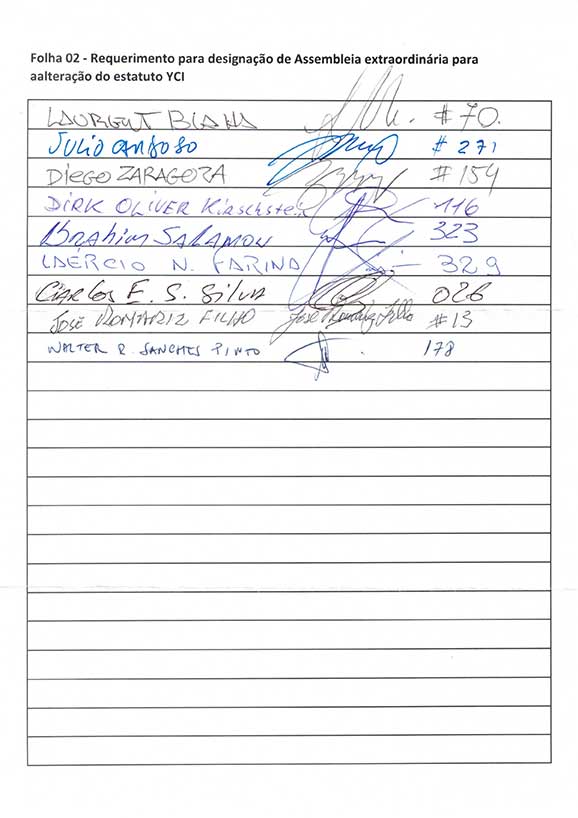 Folha 02 - Requerimento para designação de Assembleia extraordinária para
aalteração do estatuto YCI
LAURENT BLAHA #70.
JULIO CARDOSO # 271
DIEGO ZARAGOZA # 154
DIRK OLIVER Kirschstein 116
Ibrahim SALAMON 323
LAÉRCIO N. FARINA 329
CARLOS E. S. SILVA 026
JOSÉ ROMARIZ FILHO José Romariz Filho #13
WALTER R. SANCHES PINTO 178